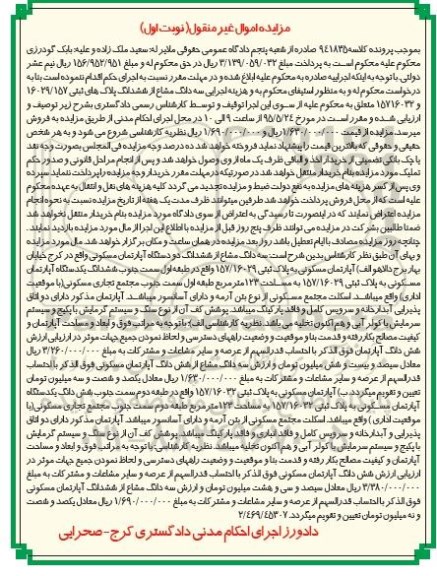 مزایده اموال غیر منقول (نوبت اول)
بموجب پرونده کلاسه ۹۴۱۸۳۵ صادره از شعبه پنجم دادگاه عمومی حقوقی ملایر له: سعید ملک زاده و علیه: بابک گودرزی
محکوم علیه محکوم است به پرداخت مبلغ ۳/۱۳۹/۰۵۹/۰۳۲ ریال در حق محکوم له و مبلغ ۱۵۶/۹۵۲/۹۵۱ ریال نیم عشر
دولتی. با توجه به اینکه اجراییه صادره به محکوم علیه ابلاغ شده و در مهلت مقرر نسبت به اجرای حکم اقدام ننموده است بنا به
درخواست محکوم له و به منظور استیفای محکوم به و هزینه اجرایی سه دانگ مشاع از ششدانگ پلاک های ثبتی ۱۶۰۲۹/۱۵۷
و ۱۵۷/۱۶۰۳۲ متعلق به محکوم علیه از سوی این اجرا توقیف و توسط کارشناس رسمی دادگستری بشرح زیر توصیف و
ارزیابی شده و مقرر است در مورخ ۹۵/۵/۲۴ از ساعت ۹ الی ۱۰ در محل اجرای احکام مدنی از طریق مزایده به فروش
میرسد. مزایده از قیمت ۱/۶۳۰/۰۰۰/۰۰۰ ریال و ۱/۶۹۰/۰۰۰/۰۰۰ ریال نظریه کارشناسی شروع می شود و به هر شخص
حقیقی و حقوقی که بالاترین قیمت را پیشنهاد نماید فروخته خواهد شد ده درصد وجه مزایده فی المجلس بصورت وجه نقد
یا چک بانکی تضمینی از خریدار اخذ و الباقی ظرف یک ماه از وی وصول خواهد شد و پس از انجام مراحل قانونی و صدور حکم
تملیک مورد مزایده بنام خریدار منتقل خواهد شد در صورتیکه در مهلت مقرر خریدار وجه مزایده را پرداخت ننماید سپرده
وی پس از کسر هزینه های مزایده به نفع دولت ضبط و مزایده تجدید می گردد کلیه هزینه های نقل و انتقال به عهده محکوم
علیه است که از محل فروش پرداخت خواهد شد طرفین میتوانند ظرف مدت یک هفته از تاریخ مزایده نسبت به نحوه انجام
مزایده اعتراض نمایند که در اینصورت تا رسیدگی به اعتراض از سوی دادگاه مورد مزایده بنام خریدار منتقل نخواهد شد
ضمنا طالبین بشرکت در مزایده می توانند ظرف پنج روز قبل از مزایده با اطلاع این اجرا از مال مورد مزایده بازدید نمایند
چنانچه روز مزایده مصادف با ایام تعطیل باشد روز بعد مزایده در همان ساعت و مکان برگزار خواهد شد. مال مورد مزایده
و بهای آن طبق نظر کارشناس بدین شرح است: سه دانگ مشاع از ششدانگ دو دستگاه آپارتمان مسکونی واقع در کرج خیابان
آپارتمان مسکونی به پلاک ثبتی ۱۵۷/۱۶۰۲۹ واقع در طبقه اول سمت جنوب ششدانگ یکدستگاه آپارتمان
مسکونی به پلاک ثبتی ۱۵۷/۱۶۰۲۹ به مساحت ۱۲۳ مترمربع طبقه اول سمت جنوب مجتمع تجاری مسکونی (با موقعیت
اداری) واقع میباشد. اسکلت مجتمع مسکونی از نوع بتن آرمه و دارای آسانسور میباشد. آپارتمان مذکور دارای دو اتاق
پذیرایی آبدارخانه و سرویس کامل و فاقد پارکینگ میباشد. پوشش کف آن از نوع سنگ و سیستم گرمایش با پکیج و سیستم
سرمایش با کولر آبی و هم اکنون تخلیه می باشد. نظریه کارشناسی الف: با توجه به مراتب فوق و ابعاد و مساحت آپارتمان و
کیفیت مصالح بکار رفته و قدمت بنا و موقعیت و وضعیت راههای دسترسی و لحاظ نمودن جمیع جهات موثر در ارزیابی ارزش
شش دانگ آپارتمان فوق الذکر با احتساب قدرالسهم از عرصه و سایر مشاعات و مشترکات به مبلغ ۳/۲۶۰/۰۰۰/۰۰۰ ریال
معادل سیصد و بیست و شش میلیون تومان و ارزش سه دانگ مشاع از شش دانگ آپارتمان مسکونی فوق الذکر با احتساب
قدرالسهم از عرصه و سایر مشاعات و مشترکات به مبلغ ۱/۶۳۰/۰۰۰/۰۰۰ ریال معادل یکصد و شصت و سه میلیون تومان
تعیین و تقویم میگردد. ب) آپارتمان مسکونی به پلاک ثبتی ۱۵۷/۱۶۰۳۲ واقع در طبقه دوم سمت جنوب شش دانگ یکدستگاه
آپارتمان مسکونی به پلاک ثبتی ۱۵۷/۱۶۰۳۲ به مساحت ۱۲۳ مترمربع طبقه دوم سمت جنوب مجتمع تجاری مسکونی (با
موقعیت اداری) واقع میباشد. اسکلت مجتمع مسکونی از بتن آرمه و دارای آسانسور میباشد. آپارتمان مذکور دارای دو اتاق
پذیرایی و آبدارخانه و سرویس کامل و فاقد انباری و فاقد پارکینگ میباشد. پوشش کف آن از نوع سنگ و سیستم گرمایش
سرمایش با کولر آبی و هم اکنون تخلیه میباشد. نظریه کارشناسی: با توجه به مراتب فوق و ابعاد و مساحت
آپارتمان و کیفیت مصالح بکار رفته و قدمت بنا و موقعیت و وضعیت راههای دسترسی و لحاظ نمودن جمیع جهات موثر در
ارزیابی ارزش شش دانگ آپارتمان مسکونی فوق الذکر با احتساب قدرالسهم از عرصه و سایر مشاعات و مشترکات به مبلغ
۳/۳۸۰/۰۰۰/۰۰۰ ریال معادل سیصد و سی و هشت میلیون تومان و ارزش سه دانگ مشاع از ششدانگ آپارتمان مسکونی
فوق الذکر با احتساب قدرالسهم از عرصه و سایر مشاعات و مشترکات به مبلغ ۱/۶۹۰/۰۰۰/۰۰۰ ریال معادل یکصد و شصت
و نه میلیون تومان تعیین و تقویم میگردد. ۲/۴۶۹/۴۵۳۰۷
دادورز اجرای احکام مدنی دادگستری کرج - صحرایی